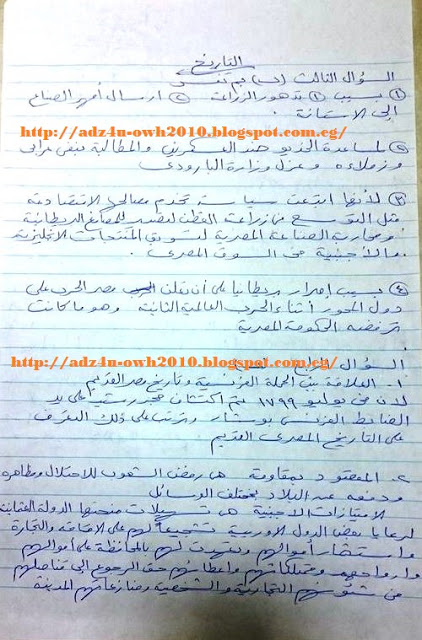 التاريخ
السؤال الثالث (ب) بم تفسر
① بسبب ① تدهور الزراعة ② ارسال أمهر الصناع
إلى الاستانة .
http://adz4u-owh2010.blogspot.com.eg/
② لمساعدة الخديو ضد العسكريين والمطالبة بنفى عرابى
وزملاءه وعزل وزارة البارودى
③ لأنها اتبعت سياسة تخدم مصالحها الاقتصادية
مثل التوسع من زراعة القطن لتصديره للمصانع البريطانية
ومحاربة الصناعة المصرية لتسويق المنتجات الانجليزية
والأجنبية فى السوق المصرى .
④ بسبب إصرار بريطانيا على أن تعلن مصر الحرب على
دول المحور أثناء الحرب العالمية الثانية وهو ما كانت
ترفضه الحكومة المصرية
http://adz4u-owh2010.blogspot.com.eg/
السؤال الرابع
١- العلاقة بين الحملة الفرنسية وتاريخ مصر القديم
لأن فى يوليو ١٧٩٩ تم اكتشاف حجر رشيد على يد
الضابط الفرنسى بوشار وترتب على ذلك التعرف
على التاريخ المصرى القديم .
٢- المقصود بمقاومة هى رفض الشعوب للاحتلال ومظاهره
ودفعه عن البلاد بمختلف الوسائل
الامتيازات الاجنبية هى تسهيلات منحتها الدولة العثمانية
لرعايا بعض الدول الاوربية تشجيعاً لهم على الاقامة والتجارة
واستثمار أموالهم وتعهدت لهم بالمحافظة على أموالهم
وأرواحهم وممتلكاتهم وإعطائهم حق الرجوع إلى قناصلهم
فى شئونهم التجارية والشخصية ومنازعاتهم المدنية